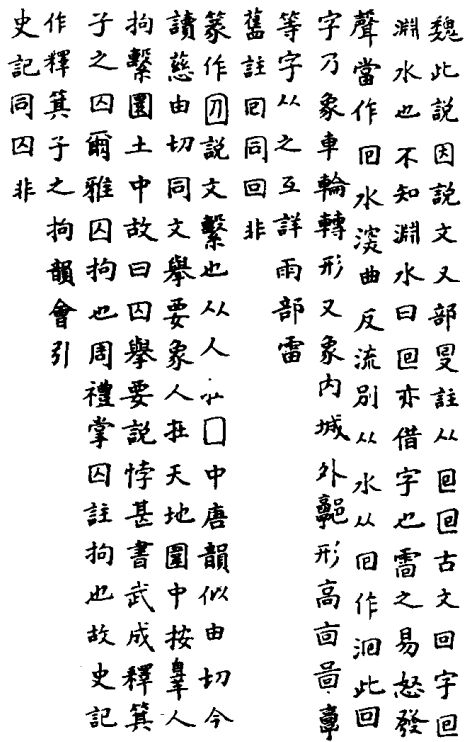 魏此說因說文又部𠬸註从囘囘古文回字囘
淵水也不知淵水曰回亦借字也䨓之易怒發
聲當作囘水漩曲反流別从水从囘作洄此回
字乃象車輪轉形又象內城外𩫏形高㐭啚𩫏
等字从之互詳雨部雷
舊註囘同回非
篆作説文繫也从人在囗中唐韻似由切今
讀慈由切同文舉要象人在天地圍中按辠人
拘繫圜土中故曰囚舉要說悖甚書武成釋箕
子之囚爾雅囚拘也周禮掌囚註拘也故史記
作釋箕子之拘韻會引
史記同囚非